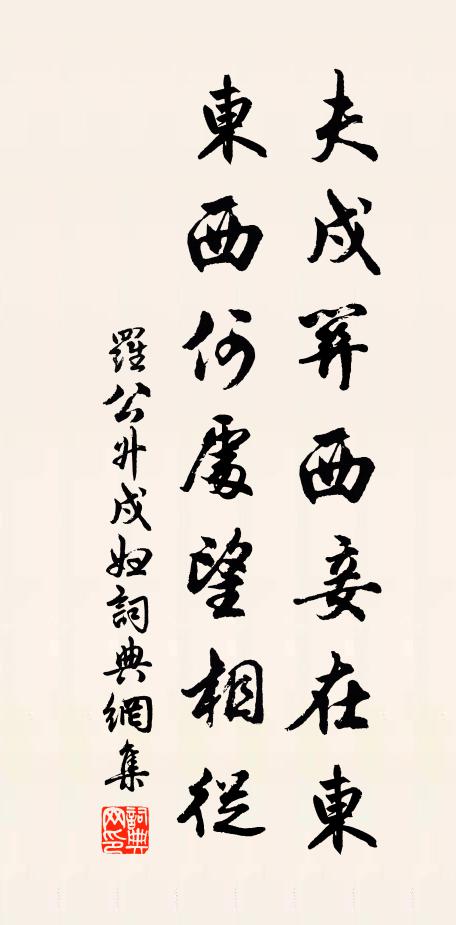 夫戍關西妾在東
東西何處望相從
羅公升戍婦詞典網集
詞典網印